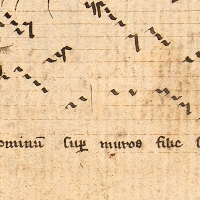 ominū suꝑ muros filie